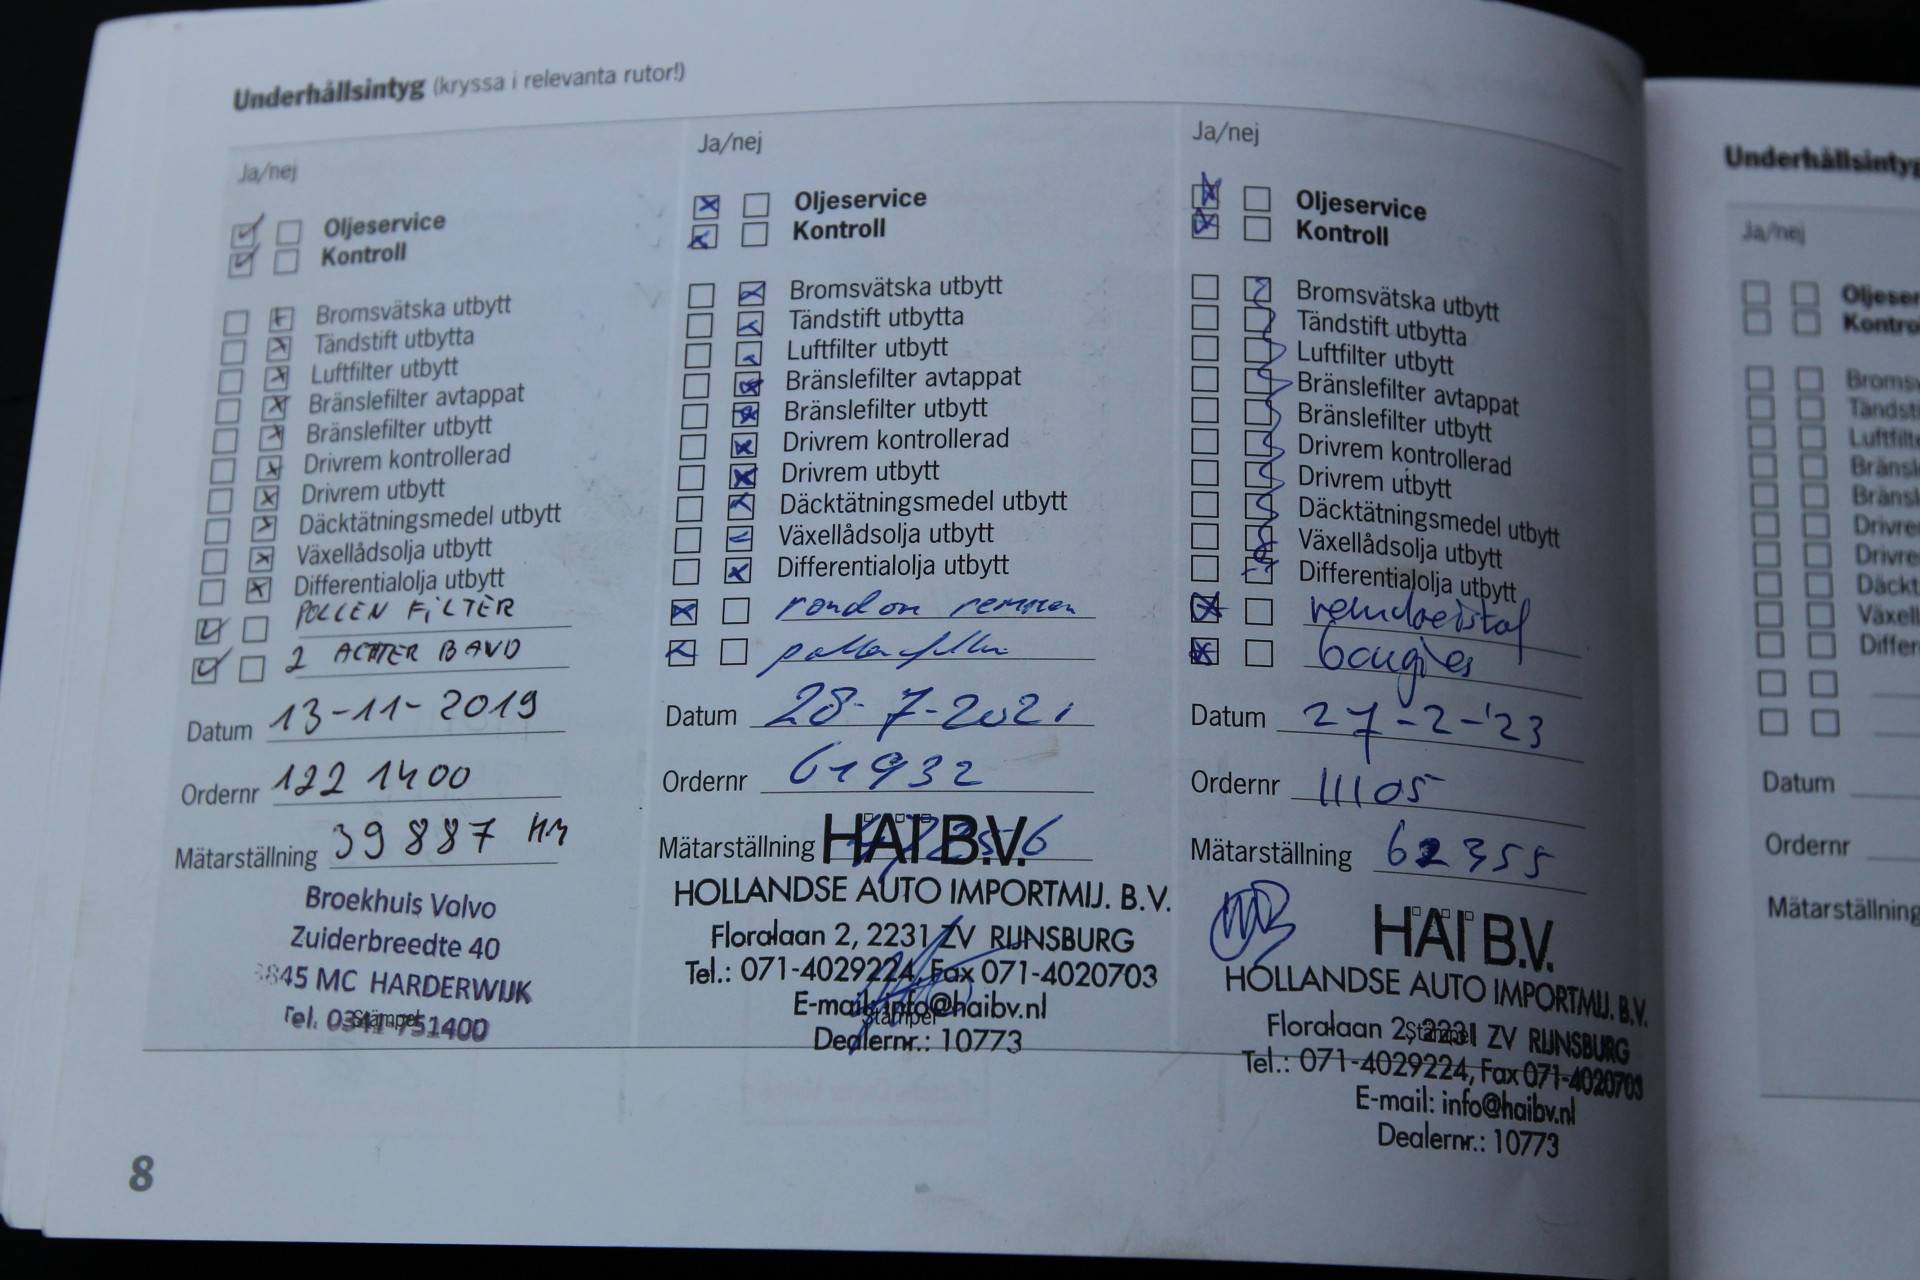 Underhållsintyg (kryssa i relevanta rutor!)
Ja/nej
Oljeservice
Kontroll
Bromsvätska utbytt
Tändstift utbytta
Luftfilter utbytt
Bränslefilter avtappat
Bränslefilter utbytt
Drivrem kontrollerad
Drivrem utbytt
Däcktätningsmedel utbytt
Växellådsolja utbytt
Differentialolja utbytt
POLLEN FILTER
2 ACHTER BAND
Datum 13-11-2019
Ordernr 122 1400
Mätarställning 39887 KM
Broekhuis Volvo
Zuiderbreedte 40
3845 MC HARDERWIJK
Tel. 0341-751400
Stämpel
Ja/nej
Oljeservice
Kontroll
Bromsvätska utbytt
Tändstift utbytta
Luftfilter utbytt
Bränslefilter avtappat
Bränslefilter utbytt
Drivrem kontrollerad
Drivrem utbytt
Däcktätningsmedel utbytt
Växellådsolja utbytt
Differentialolja utbytt
rondom remmen
pollenfilter
Datum 28-7-2021
Ordernr 61932
Mätarställning
HAI B.V.
HOLLANDSE AUTO IMPORTMIJ. B.V.
Floralaan 2, 2231 ZV RIJNSBURG
Tel.: 071-4029224, Fax 071-4020703
E-mail: info@haibv.nl
Stämpel
Dealernr.: 10773
Ja/nej
Oljeservice
Kontroll
Bromsvätska utbytt
Tändstift utbytta
Luftfilter utbytt
Bränslefilter avtappat
Bränslefilter utbytt
Drivrem kontrollerad
Drivrem utbytt
Däcktätningsmedel utbytt
Växellådsolja utbytt
Differentialolja utbytt
remvloeistof
bougies
Datum 27-2-'23
Ordernr 11105
Mätarställning 62355
HAI B.V.
HOLLANDSE AUTO IMPORTMIJ. B.V.
Floralaan 2, 2231 ZV RIJNSBURG
Stämpel
Tel.: 071-4029224, Fax 071-4020703
E-mail: info@haibv.nl
Dealernr.: 10773
8
Underhållsintyg
Ja/nej
Oljeser
Kontro
Bromsv
Tändsti
Luftfilte
Bränsl
Bränsl
Drivre
Drivre
Däckt
Växell
Differ
Datum
Ordernr
Mätarställning